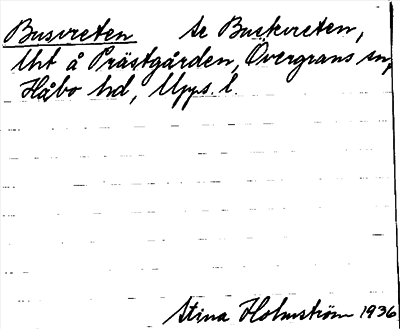 Busvreten se Buskvreten,
Urt å Prästgården, Övergrans sn,
Håbo hd, Upps. l.
Stina Holmström 1936